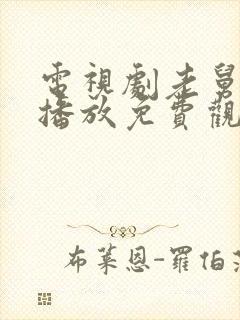 電視劇老舅
播放免費觀
布萊恩-羅伯